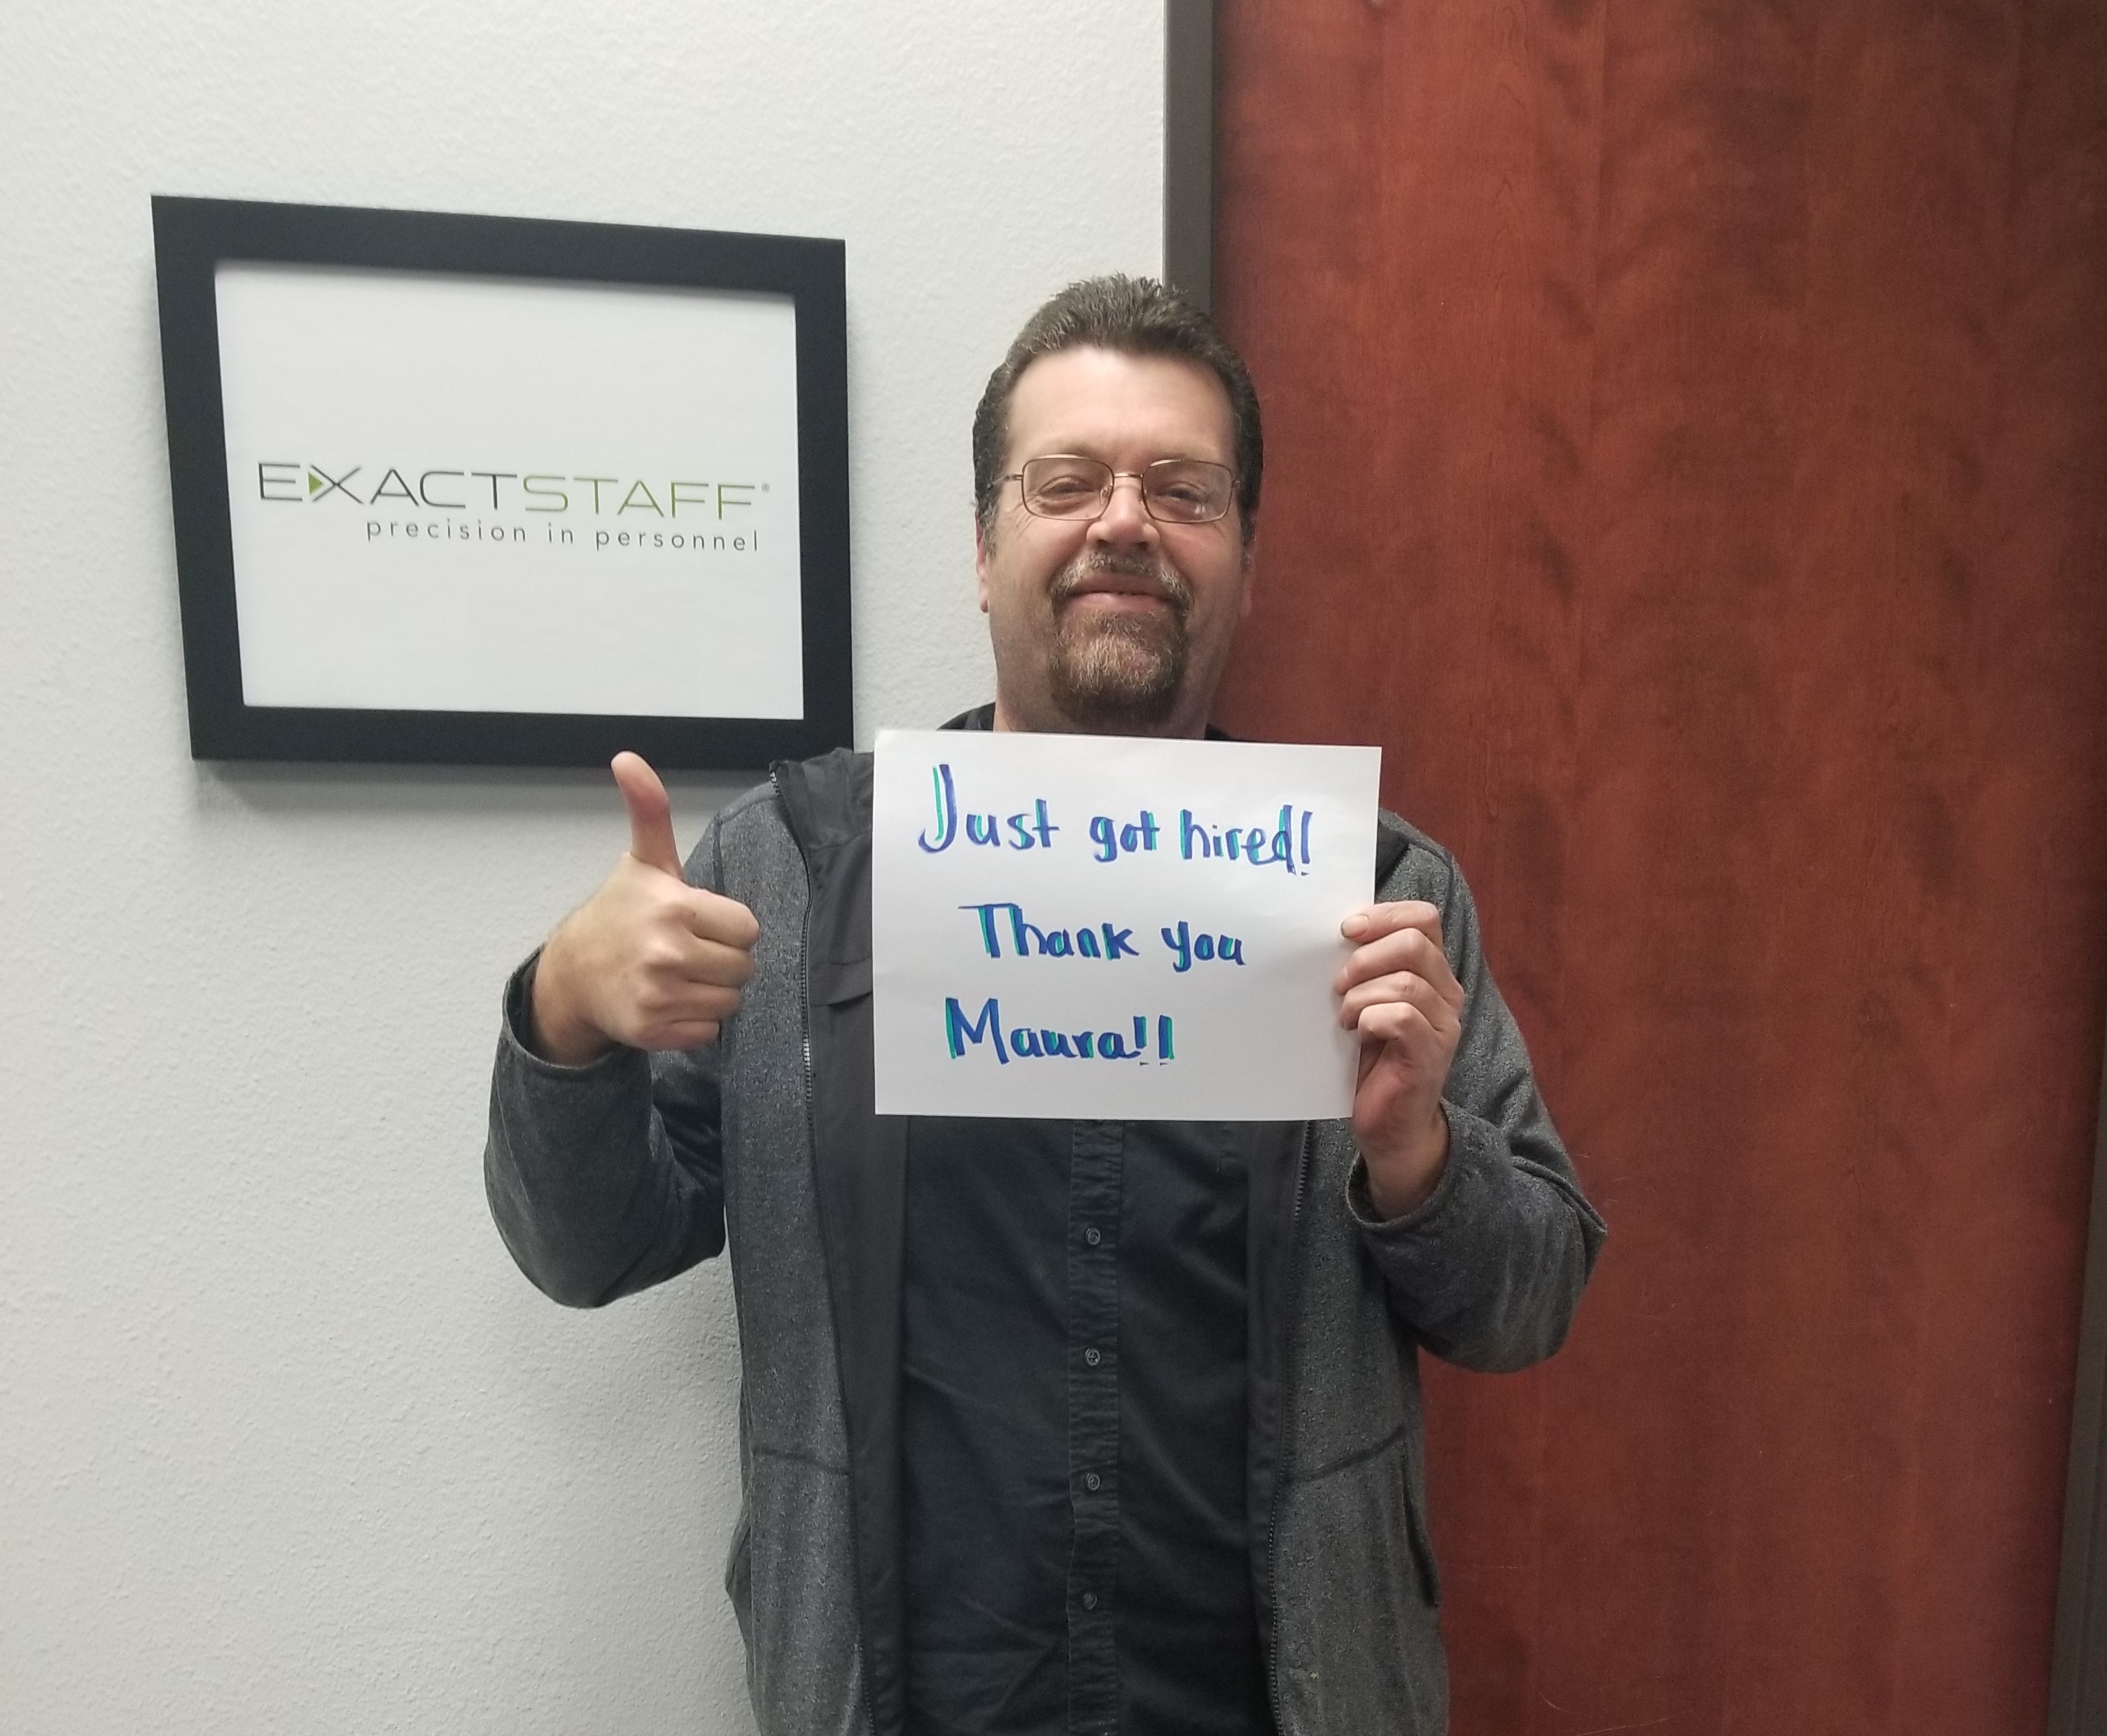 EXACTSTAFF®
precision in personnel
Just got hired!
Thank you
Maura!!